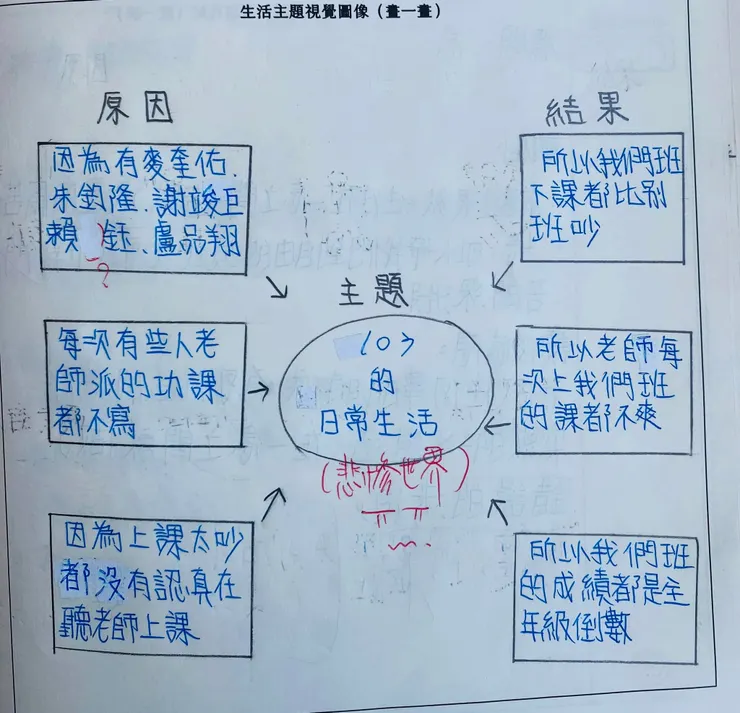 生活主題視覺圖像（畫一畫）
原因
因為有麥奎佑、
朱鈞隆、謝竣巨
賴 鈺、盧品翔
?
每次有些人老
師派的功課
都不寫
因為上課太吵
都沒有認真在
聽老師上課
主題
103
的
日常生活
(悲慘世界)
結果
所以我們班
下課都比別
班吵
所以老師每
次上我們班
的課都不爽
所以我們班
的成績都是全
年級倒數